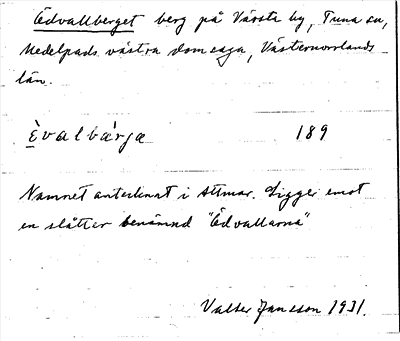 Edvallberget berg på Värsta by, Tuna sn,
Medelpads västra domsaga, Västernorrlands
län.
Èvalbärja 189
Namnet antecknat i Attmar. Ligger emot
en slåtter benämnd "Edvallarna"
Valter Jansson 1931.